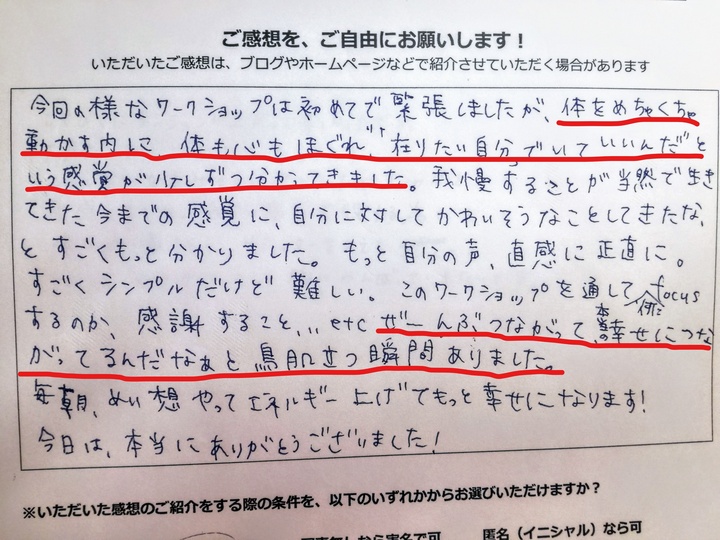 ご感想を、ご自由にお願いします！
いただいたご感想は、ブログやホームページなどで紹介させていただく場合があります
今回の様なワークショップは初めてで緊張しましたが、体をめちゃくちゃ
動かす内に、体も心もほぐれ、在りたい自分でいていいんだと
いう感覚が少しずつ分かってきました。我慢することが当然で生き
てきた今までの感覚に、自分に対してかわいそうなことしてきたな、
とすごくもっと分かりました。もっと自分の声、直感に正直に。
すごくシンプルだけど難しい。このワークショップを通して何にfocus
するのか、感謝すること、... etc ぜーんぶつながって、本当の幸せにつな
がってるんだなぁと鳥肌立つ瞬間ありました。
毎朝、めい想やってエネルギー上げてもっと幸せになります！
今日は、本当にありがとうございました！
※いただいた感想のご紹介をする際の条件を、以下のいずれかからお選びいただけますか？
匿名（イニシャル）なら可